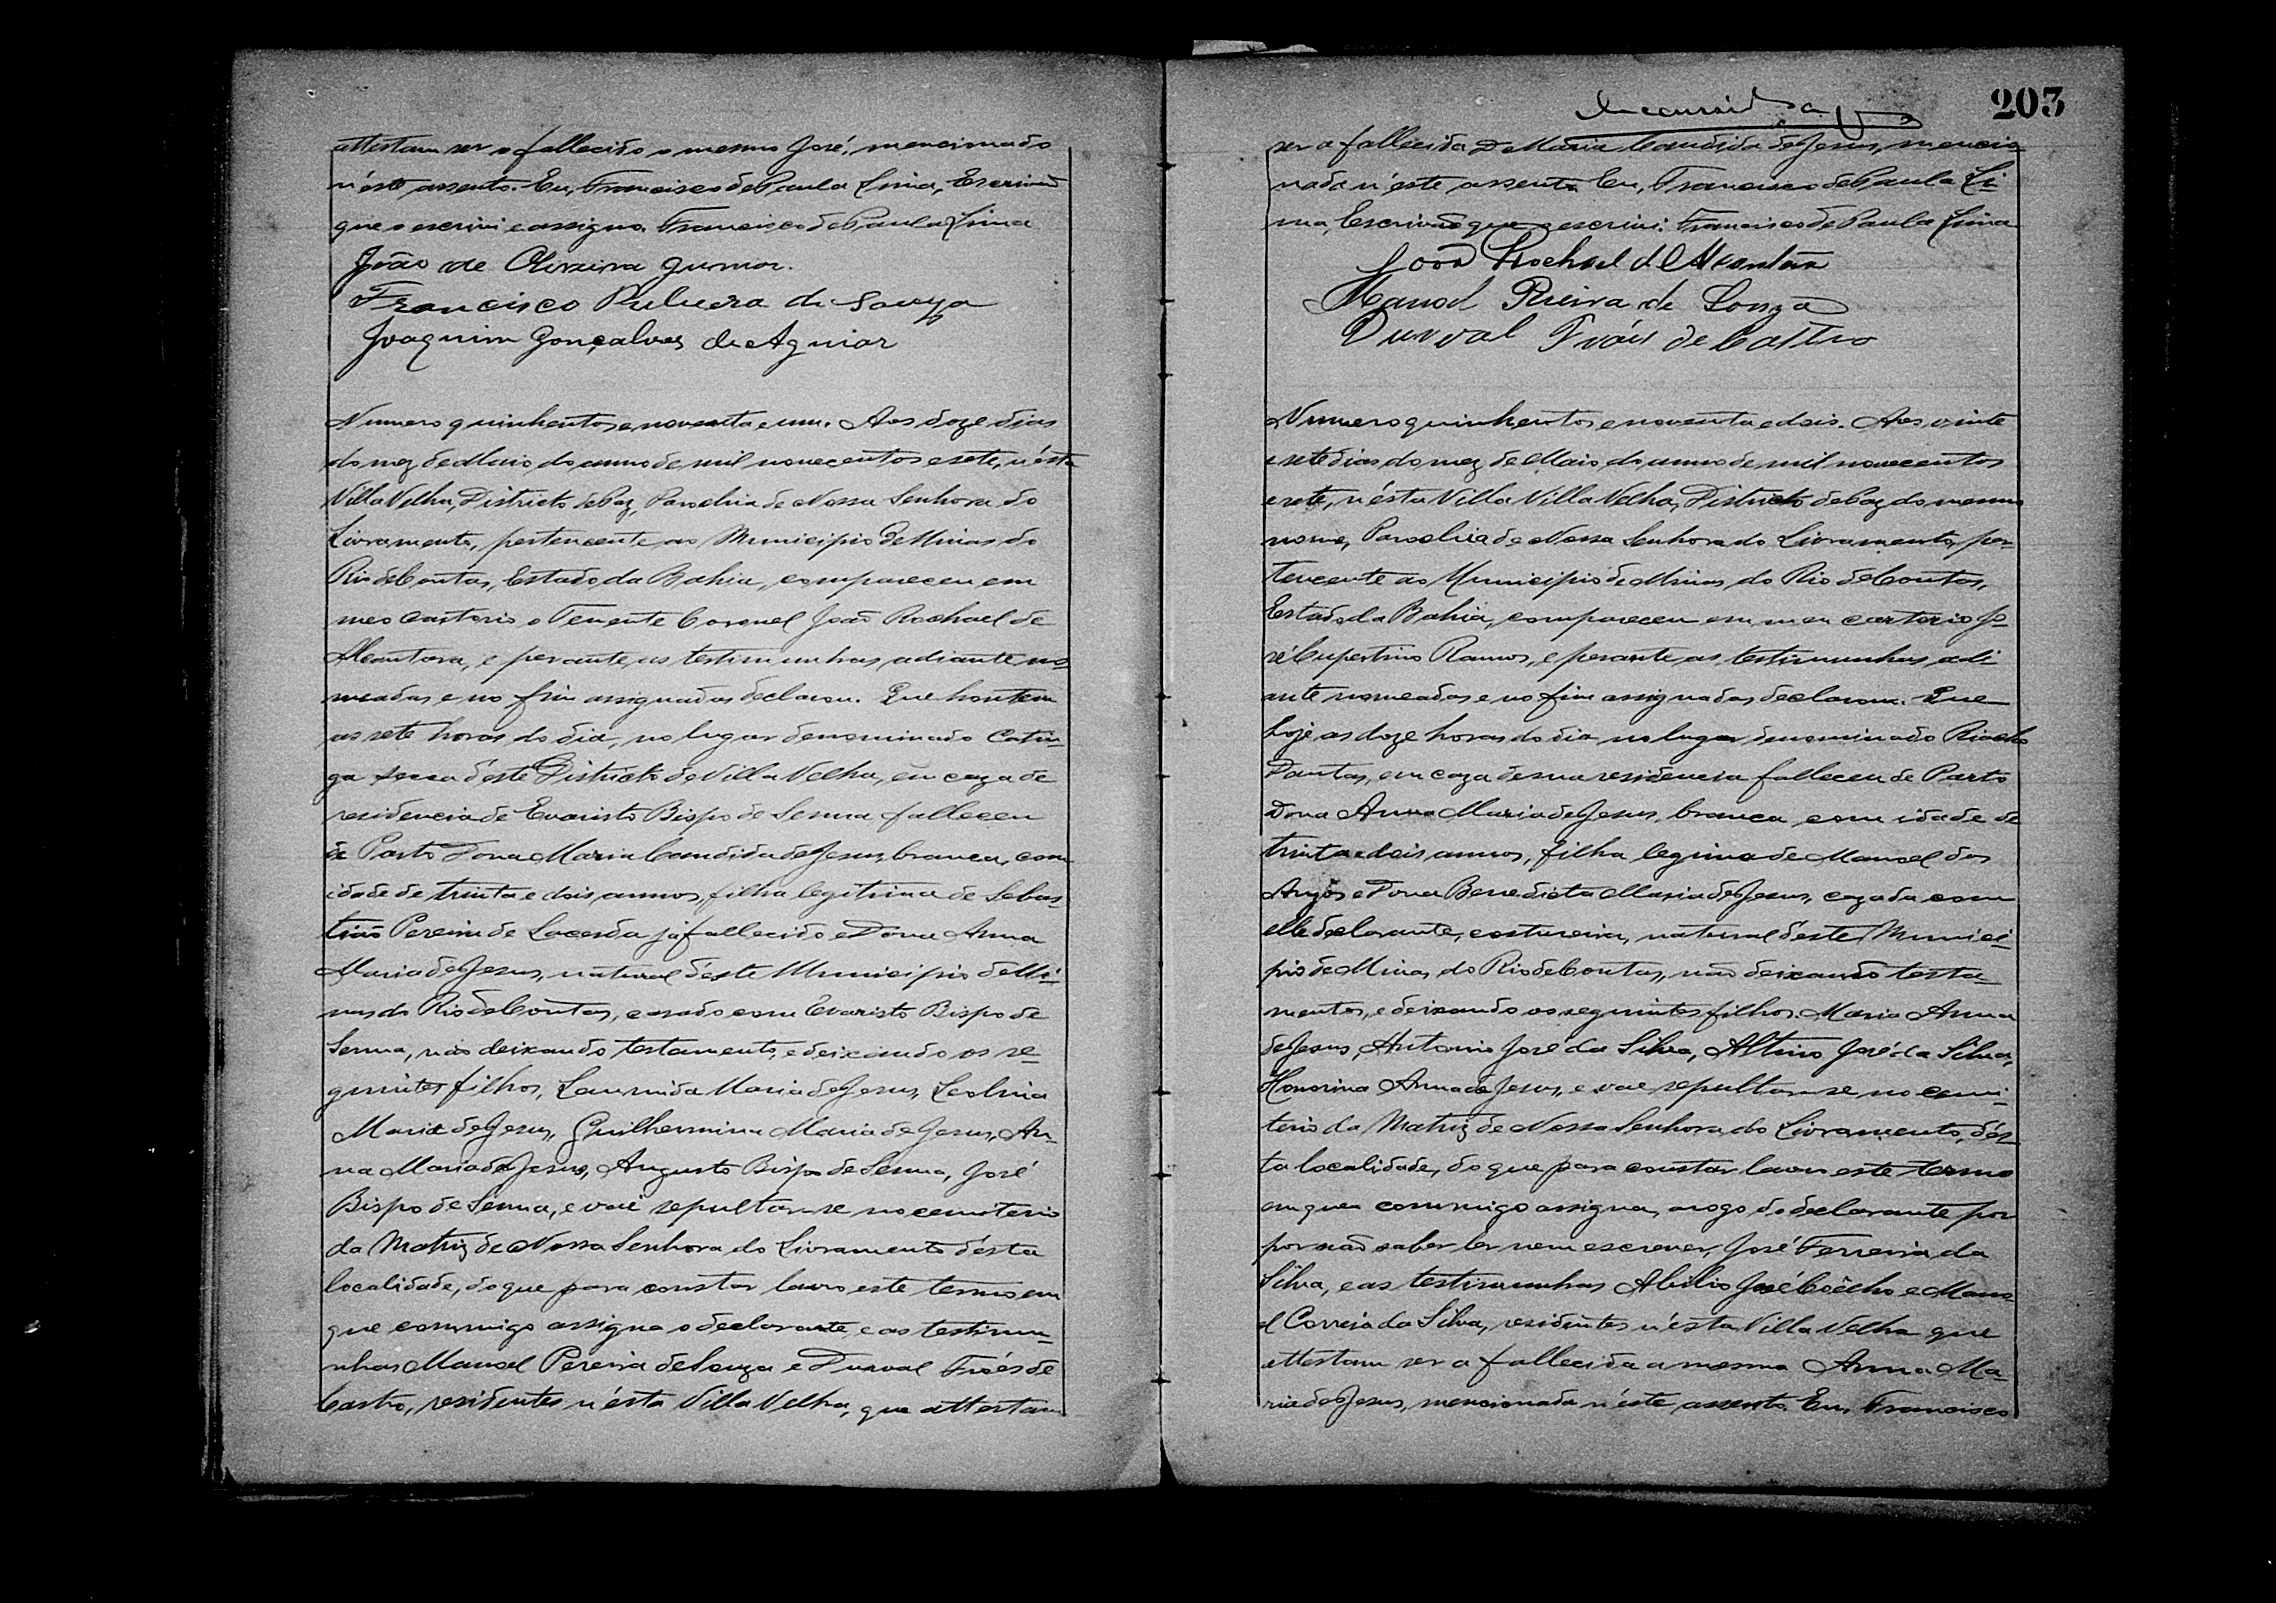 attestam ser o fallecido o mesmo José, mencionado
n'éste assento. Eu, Francisco de Paula Lima, Escrivão
que o escrivi e assigno. Francisco de Paula Lima
João de Oliveira Junior.
Francisco de Souza
Joaquim Gonçalves de Aguiar
Numero quinhentos e noventa e um. Aos doze dias
do mez de Maio do anno de mil novecentos e sete, n'ésta
Villa Velha, Districto de Paz, Parochia de Nossa Senhora do
Livramento, pertencente ao Municipio de Minas do
Rio de Contas, Estado da Bahia, compareceu em
meo Cartorio o Tenente Coronel João Rachael de
Alcantara, e perante as testimunhas adiante no
meadas e no fim assignadas declarou. Que hontem
as sete horas do dia, no lugar denominado Catin-
ga secca d'éste Districto de Villa Velha, em caza de
residencia de Evaristo Bispo de Senna falleceu
de Parto Dona Maria Candida de Jesus, branca, com
idade de trinta e dois annos, filha legitima de Sebas-
tião Pereira de Lacerda já fallecido e Dona Anna
Maria de Jesus, natural d'éste Municipio de Mi-
nas do Rio de Contas, casado com Evaristo Bispo de
Senna, não deixando testamento, e deixando os se-
guintes filhos, Maria de Jesus, Leolina
Maria de Jesus, Guilhermina Maria de Jesus, An-
na Maria de Jesus, Augusto Bispo de Senna, José
Bispo de Senna, e vai sepultar-se no cemiterio
da Matriz de Nossa Senhora do Livramento d'ésta
localidade, do que para constar lavro este termo em
que commigo assigna o declarante, e as testimu-
nhas Manoel Pereira de Souza e Durval Fróes de
Castro, residentes n'ésta Villa Velha, que attestam
203
ser a fallecida D. Maria Candida de Jesus, mencio
nada n'éste assento. Eu, Francisco de Paula Li-
ma, Escrivão que o escrivi. Francisco de Paula Lima
João Rachael d'Alcantara
Manoel Pereira de Souza
Durval Fróes de Castro
Numero quinhentos e noventa e dois. Aos vinte
e sete dias do mez de Maio do anno de mil novecentos
e sete, n'ésta Villa Villa Velha, Districto de Paz do mesmo
nome, Parochia de Nossa Senhora do Livramento, per-
tencente ao Municipio de Minas do Rio de Contas,
Estado da Bahia, compareceu em meu cartorio Jo-
sé Cupertino Ramos, e perante as testimunhas adi
ante nomeadas e no fim assignadas declarou. Que
hoje as doze horas do dia no lugar denominado Riacho
Dantas, em caza de sua residencia falleceu de Parto
Dona Anna Maria de Jesus, branca, com idade de
trinta e dois annos, filha legima de Manoel dos
Anjos e Dona Benedicta Maria de Jesus, cazada com
elle declarante, costureira, natural d'éste Munici-
pio de Minas do Rio de Contas, não deixando testa-
mentos, e deixando os seguintes filhos. Maria Anna
de Jesus, Antonio José da Silva, Altino José da Silva,
Honorina Anna de Jesus, e vae sepultar-se no cemi-
terio da Matriz de Nossa Senhora do Livramento, d'és-
ta localidade, do que para constar lavro este termo
em que commigo assigna, a rogo do declarante por
por não saber ler nem escrever, José Ferreira da
Silva, e as testimunhas Abilio José Coêlho e Mano
el Correia da Silva, residentes n'ésta Villa Velha que
attestam ser a fallecida a mesma Anna Ma-
ria de Jesus, mencionada n'éste assento. Eu, Francisco